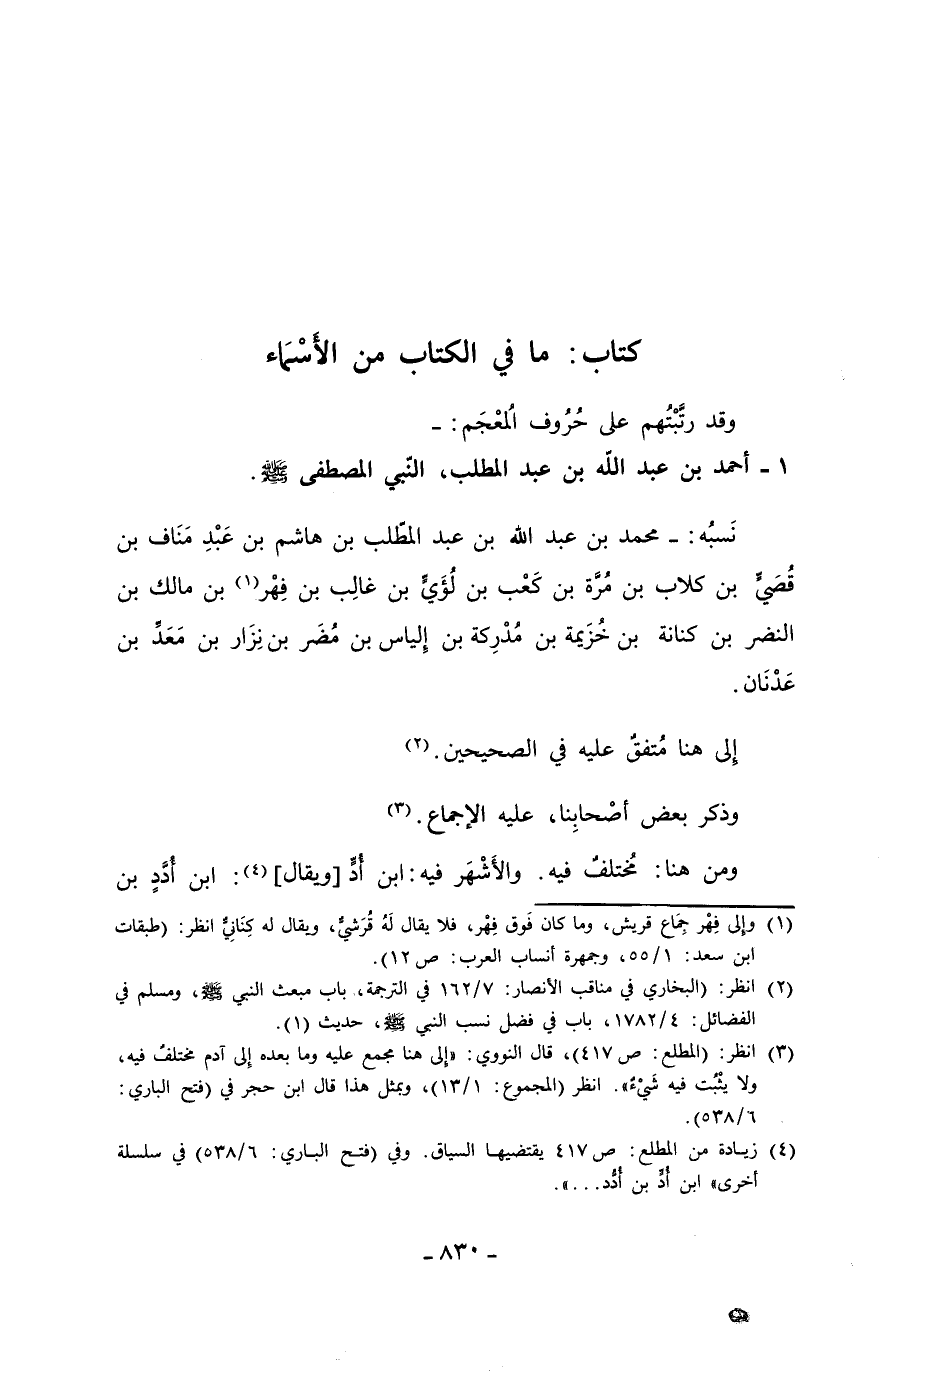 كتاب: ما في الكتاب من الأَسْمَاء
وقد رتَّبْتُهم على حُرُوف المُعْجَم: ـ
١ ـ أحمد بن عبد اللّه بن عبد المطلب، النّبي المصطفى ﷺ.
نَسبُه: ـ محمد بن عبد الله بن عبد المطّلب بن هاشم بن عَبْدِ مَنَاف بن
قُصَيٍّ بن كلاب بن مُرَّة بن كَعْب بن لُؤَيٍّ بن غالِب بن فِهْر(١) بن مالك بن
النضر بن كنانة بن خُزَيمة بن مُدْرِكة بن إلياس بن مُضَر بن نِزَار بن مَعَدِّ بن
عَدْنَان.
إلى هنا مُتفقٌ عليه في الصحيحين.(٢)
وذكر بعض أصْحابِنا، عليه الإجماع.(٣)
ومن هنا: مُختلفٌ فيه. والأَشْهَر فيه: ابن أُدٍّ [ويقال](٤): ابن أُدَّدٍ بن
(١) وإلى فِهْر جِمَاع قريش، وما كان فَوق فِهْر، فلا يقال لَهُ قُرَشيٌّ، ويقال له كِنَانِيٌّ انظر: (طبقات
ابن سعد: ٥٥/١، وجمهرة أنساب العرب: ص ١٢).
(٢) انظر: (البخاري في مناقب الأنصار: ١٦٢/٧ في الترجمة، باب مبعث النبي ﷺ، ومسلم في
الفضائل: ١٧٨٢/٤، باب في فضل نسب النبي ﷺ، حديث (١).
(٣) انظر: (المطلع: ص ٤١٧)، قال النووي: «إلى هنا مجمع عليه وما بعده إلى آدم مختلفٌ فيه،
ولا يثْبُت فيه شَيْءٌ». انظر (المجموع: ١٣/١)، وبمثل هذا قال ابن حجر في (فتح الباري:
٥٣٨/٦).
(٤) زيـادة من المطلع: ص ٤١٧ يقتضيهـا السياق. وفي (فتـح البـاري: ٥٣٨/٦) في سلسلة
أخرى» ابن أُدٍّ بن أُدُّد...».
ـ ٨٣٠ ـ